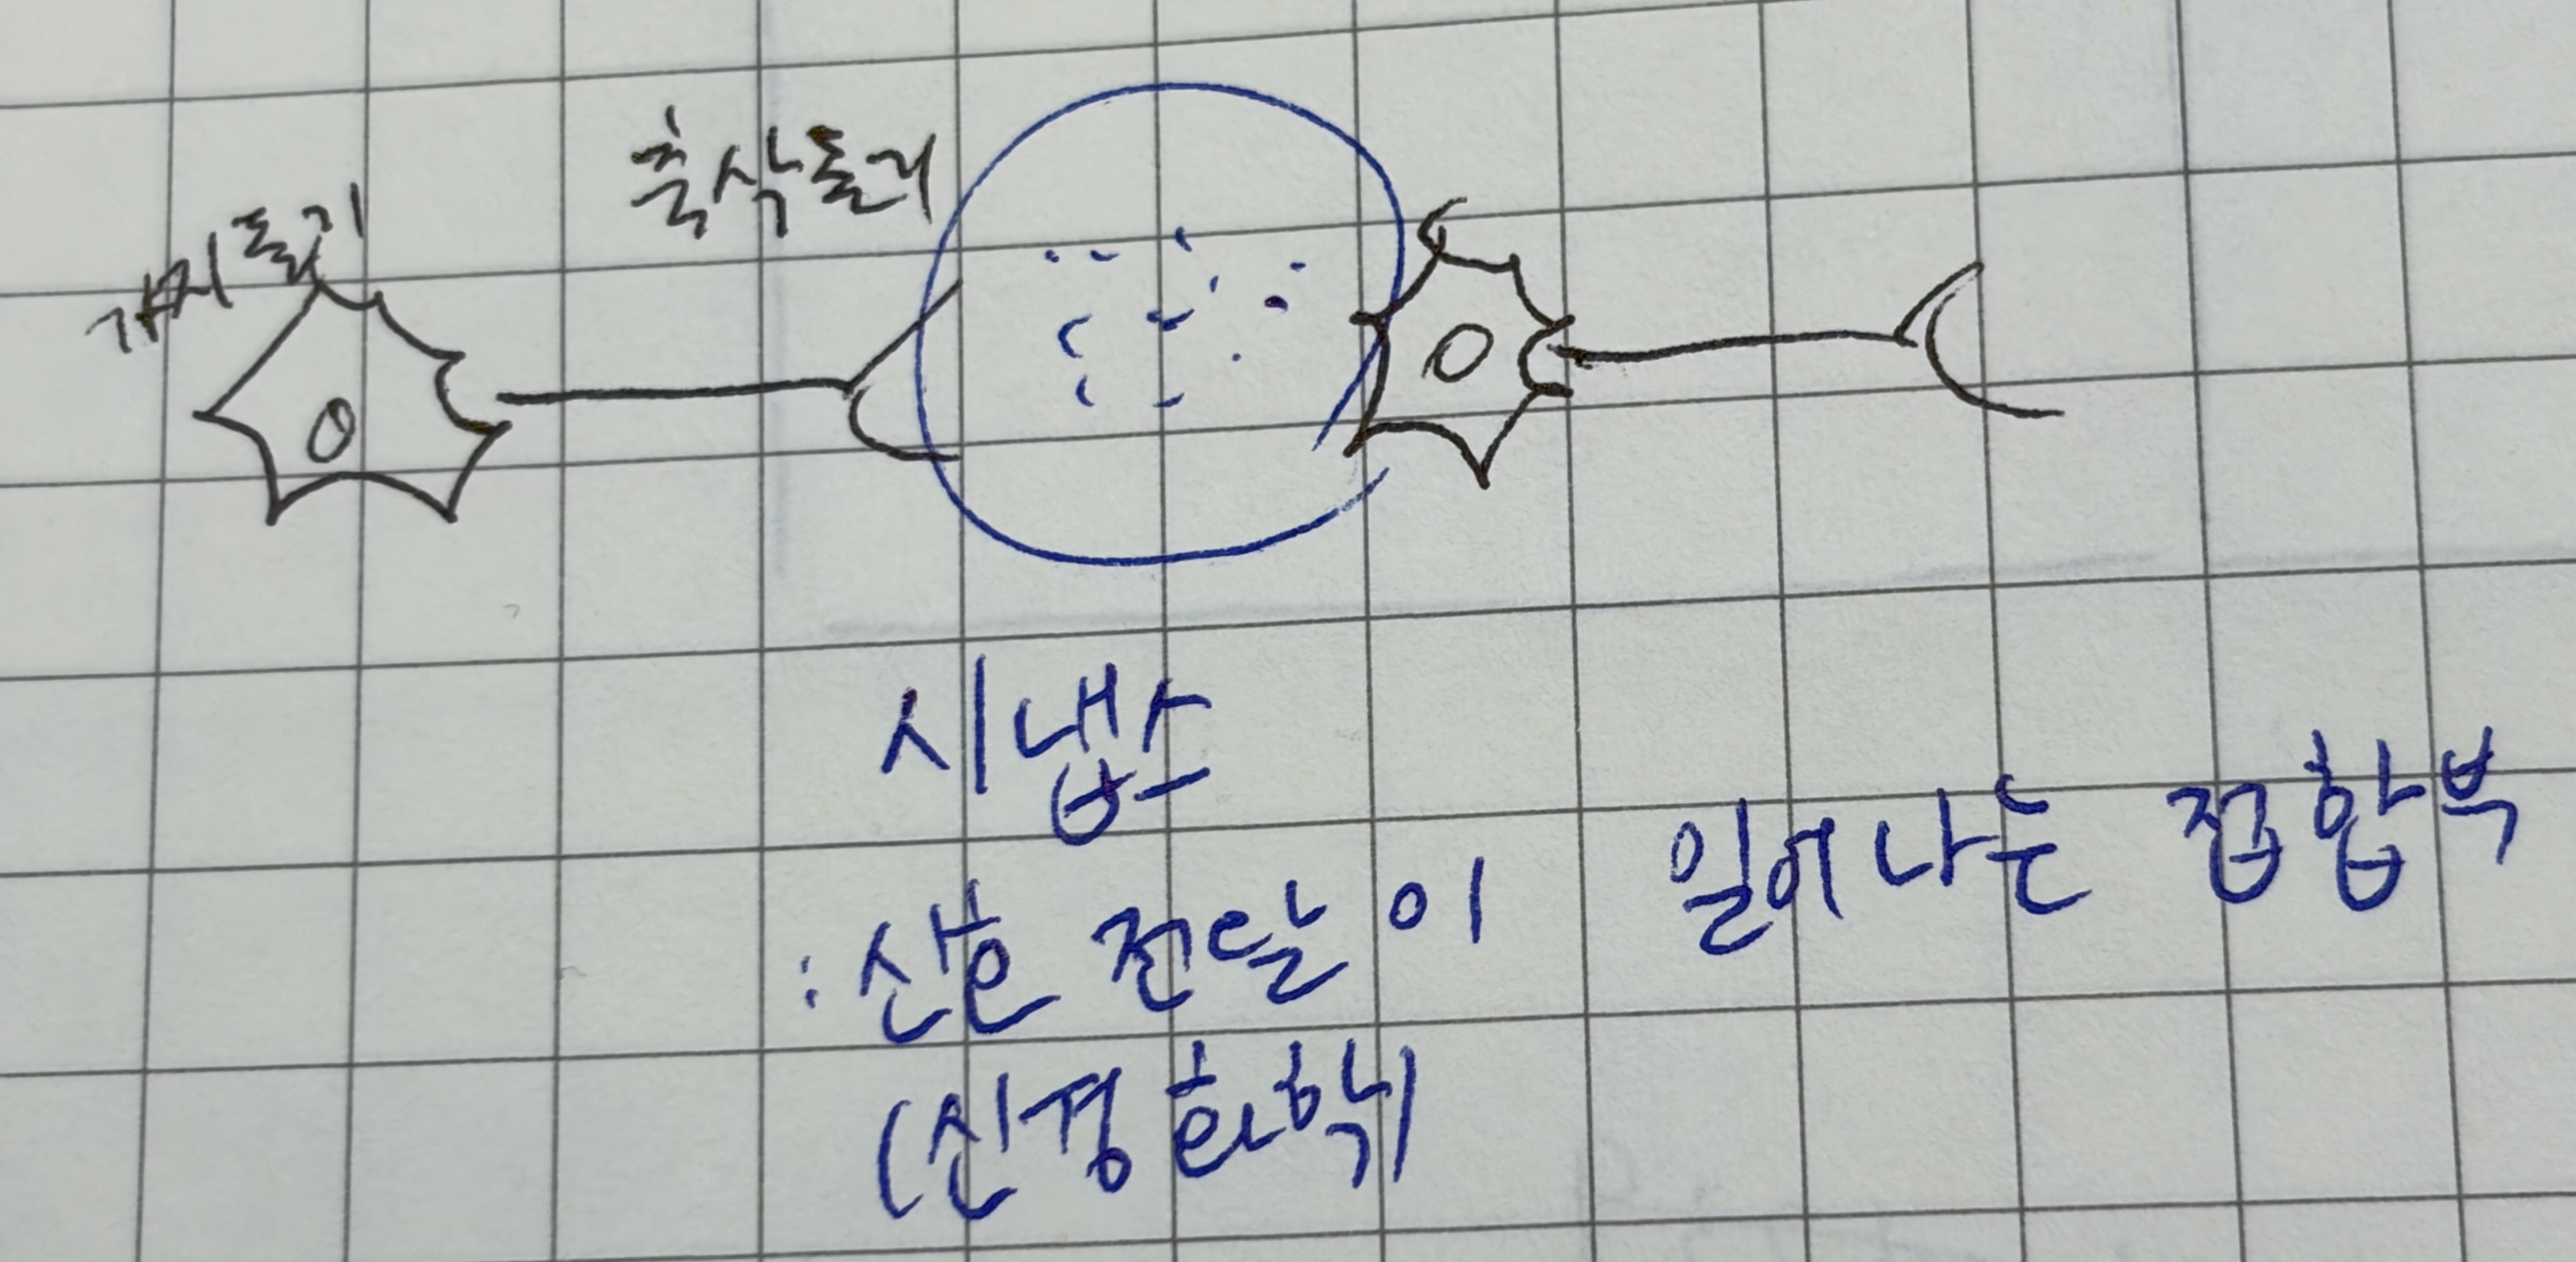 가지돌기
축삭돌기
시냅스
: 신호 전달이 일어나는 접합부
(신경화학)